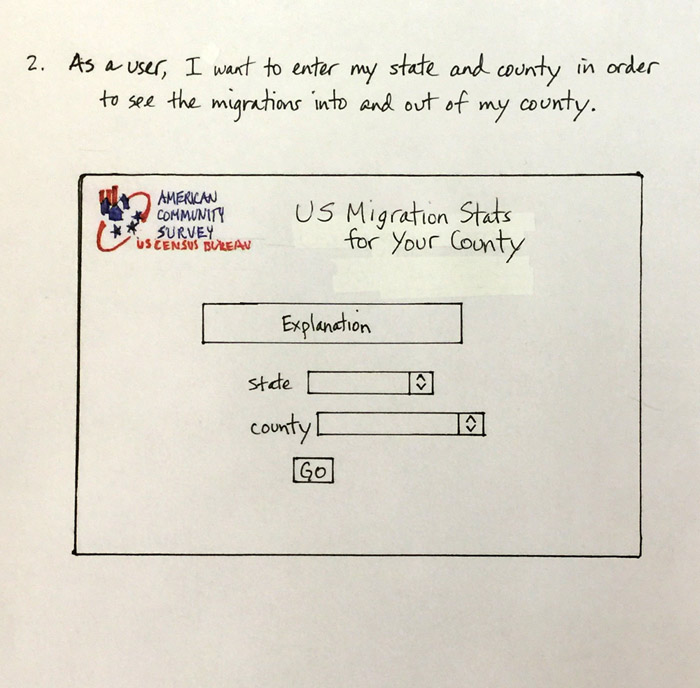 2. As a user, I want to enter my state and county in order
to see the migrations into and out of my county.
AMERICAN
COMMUNITY
SURVEY
US CENSUS BUREAU
US Migration Stats
for Your County
Explanation
state
county
Go